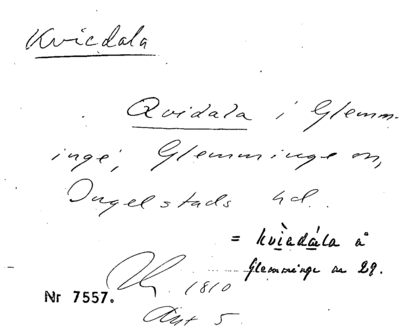 Kvicdala
Qvidala i Glemm-
inge, Glemminge sn,
Ingelstads hd.
= kvìedála å
Glemminge sn 28.
1810
Nr 7557.
Akt 5